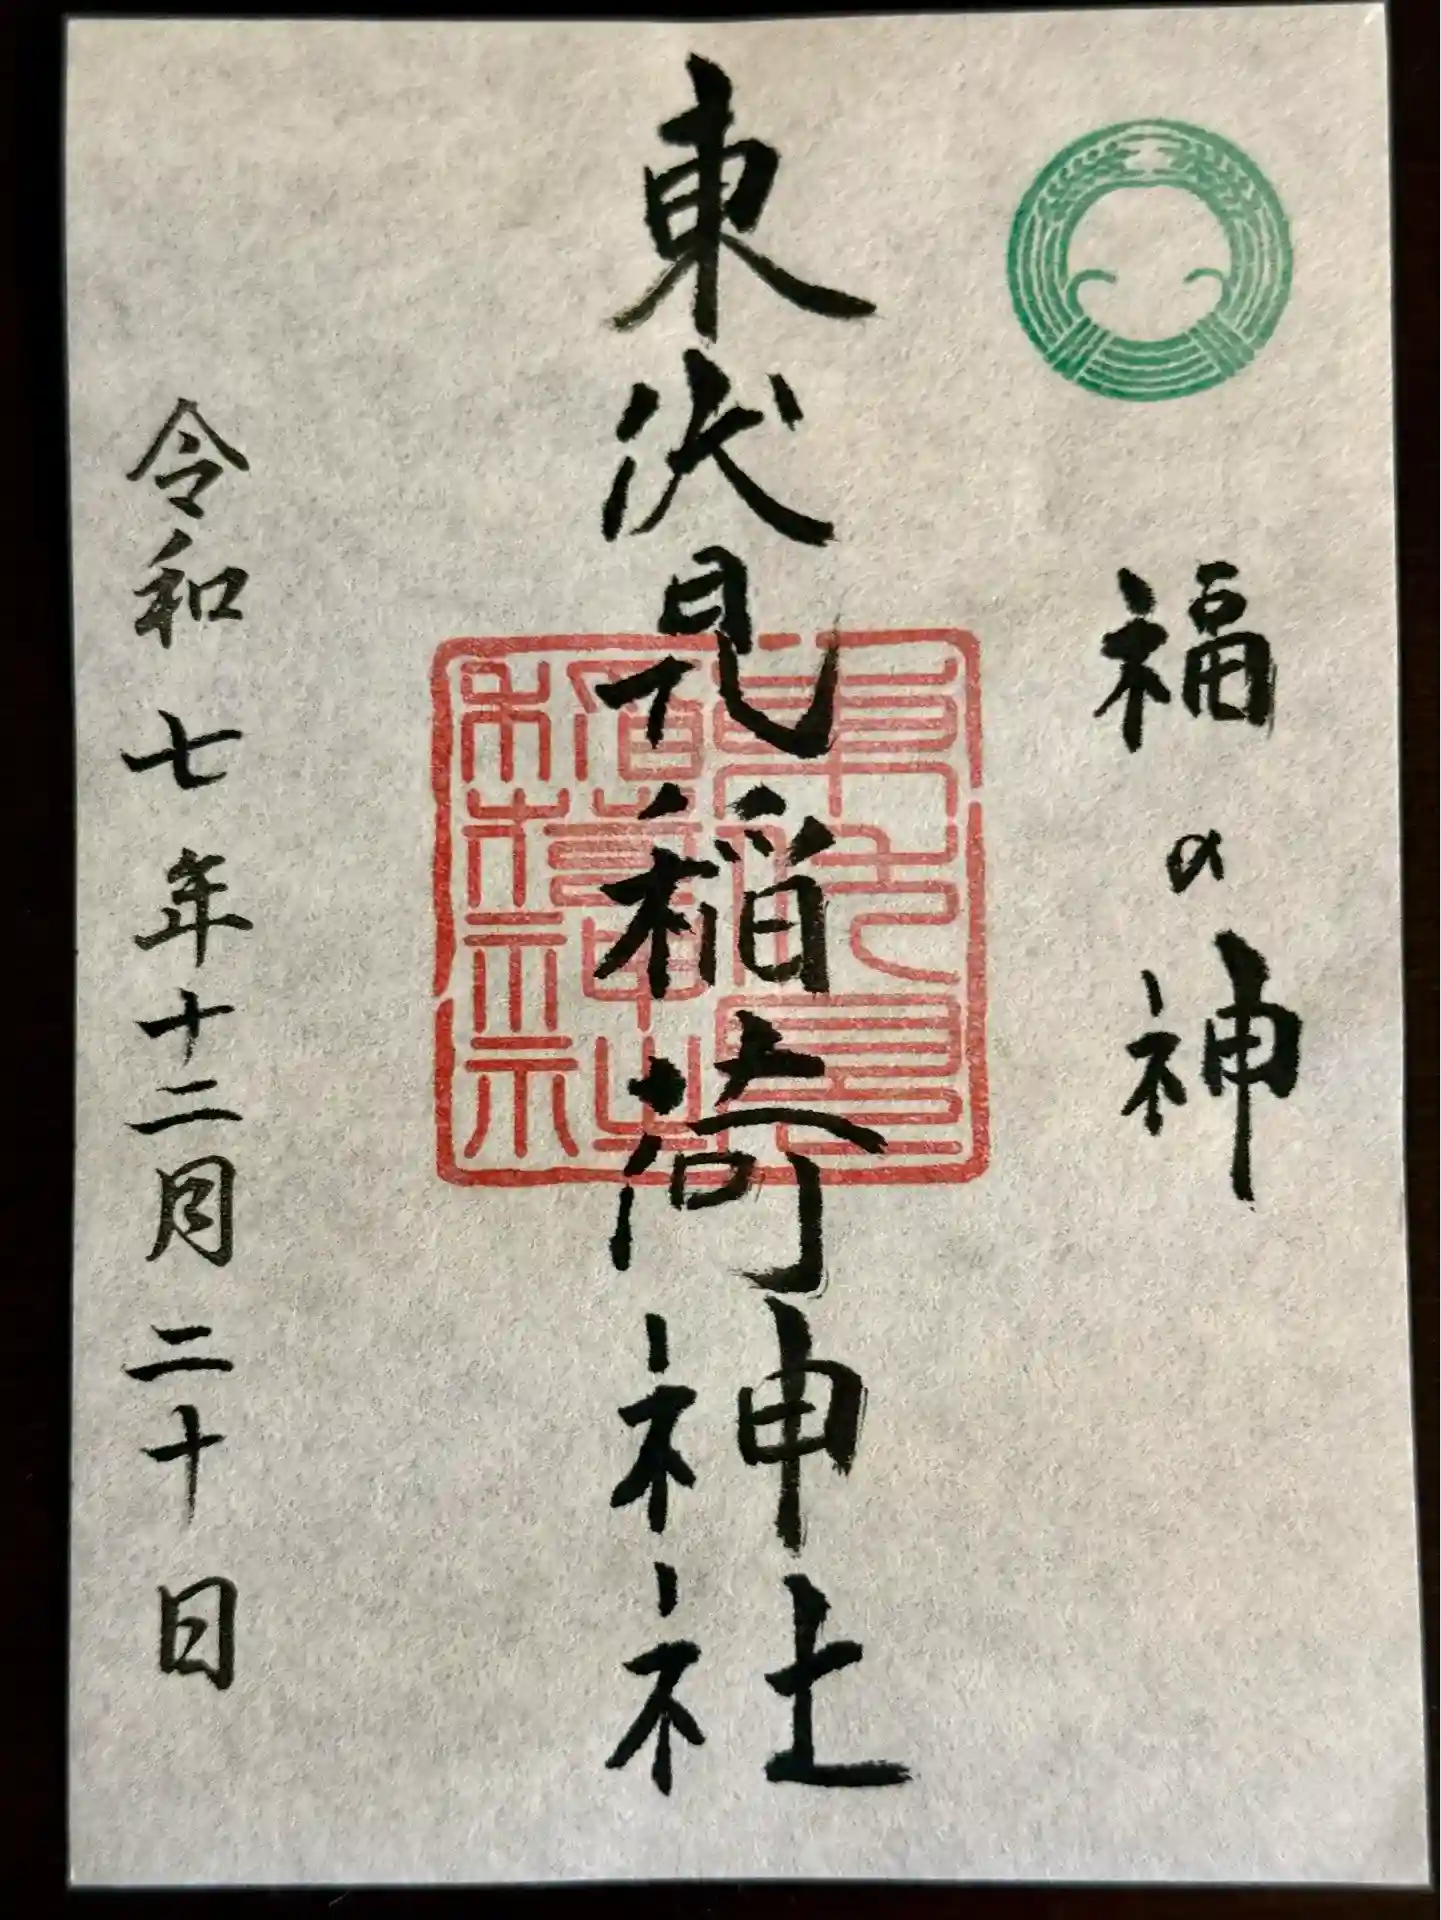 福の神
東伏見稲荷神社
令和七年十二月二十日
東伏見
稲荷神社